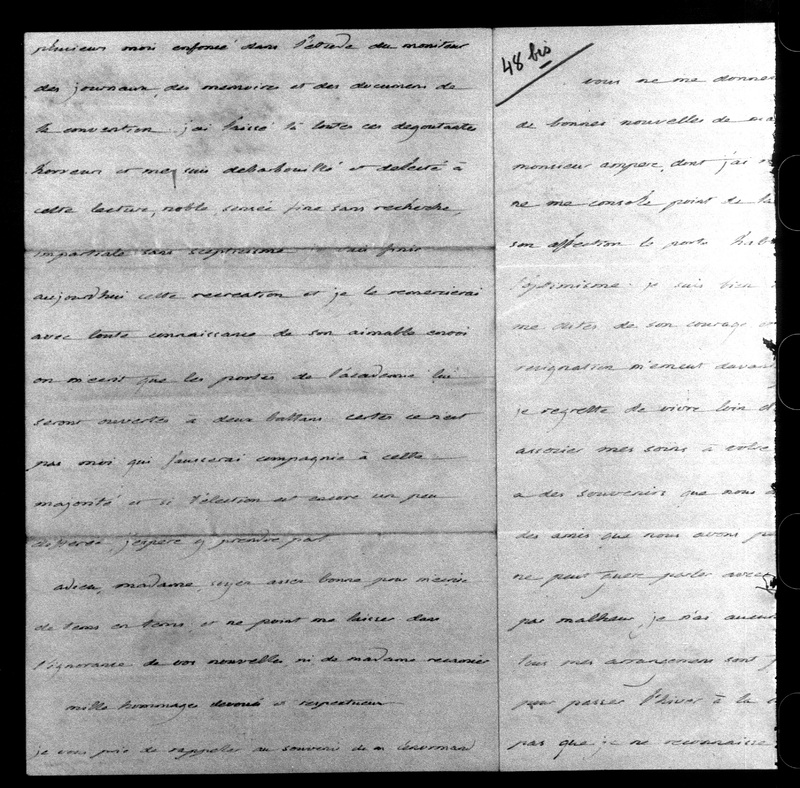 plusieurs mois enfoncé dans l'etude du moniteur
des journaux, des memoires et des documens de
la convention. j'ai laissé là toutes ces degoutantes
horreurs et me suis debarbouillé et delecté à
cette lecture, noble, sensée fine sans recherche,
impartiale sans scepticisme. je vais finir
aujourdhui cette recreation et je le remercierai
avec toute connaissance de son aimable envoi
on m'ecrit que les portes de l'académie lui
seront ouvertes à deux battans certes ce n'est
pas moi qui fausserai compagnie à cette
majorité et si l'élection est encore un peu
differée, j'espere y prendre part
adieu, madame, soyez assez bonne pour m'ecrire
de tems en tems, et ne point me laisser dans
l'ignorance de vos nouvelles ni de madame recamier
mille hommages devoués et respectueux
je vous prie de rappeller au souvenir de m lenormand
48 bis
vous ne me donnez
de bonnes nouvelles de
monsieur ampere, dont j'ai
ne me console point de
son affection le porte
l'optimisme. je suis bien
me dites de son courage
resignation m'emeut
je regrette de vivre loin
associer mes soins à votre
a des souvenirs que nous
des amis que nous avons
ne peut guere parler avec
par malheur, je n'ai
tous mes arrangemens sont
pour passer l'hiver à la
pas que je ne reconnaisse